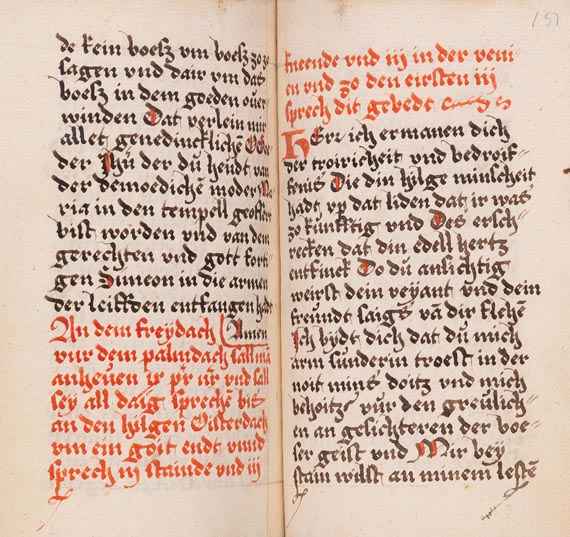 de kein boesz vm boesz zo
sagen vnd dair vm dat
boesz in dem goeden ouer
winden Dat verlein mir
allet genedinckliche
der Jhū der dū heudt van
der demoedichē moder Ma
ria in den tempell geoffert
bist worden vnd van dem
gerechten vnd gott forti
gen Simeon in die armen
der leiffden entfangen
Amen
An dem freydach
vur dem palmdach sall mā
anheuen yr pr̄ nr̄ vnd sall
sey all daig sprechē bis
an den hilgen Oisterdach
vm ein goit endt vmd
sprech iij stainde vnd iij
151
kneende vnd iij in der veni
en vnd zo den eirsten iij
sprech dit gebedt
HErr ich ermanen dich
der troiricheit vnd bedroif
fenis Die din hilge minscheit
hadt vp dat liden dat ir was
zo kunfftig vnd Des ersch
recken dat din edell hertz
entfinck Do dū ansichtig
weirst dein veyant vnd dein
freundt saigs vā dir fliehē
Jch bydt dich dat dū mich
arm sunderin troest in der
noit mins doitz vnd mich
behoitz vur den greulich
en an gesichteren der boe
ser geist vnd Mir bey
stain willst an minem lestē